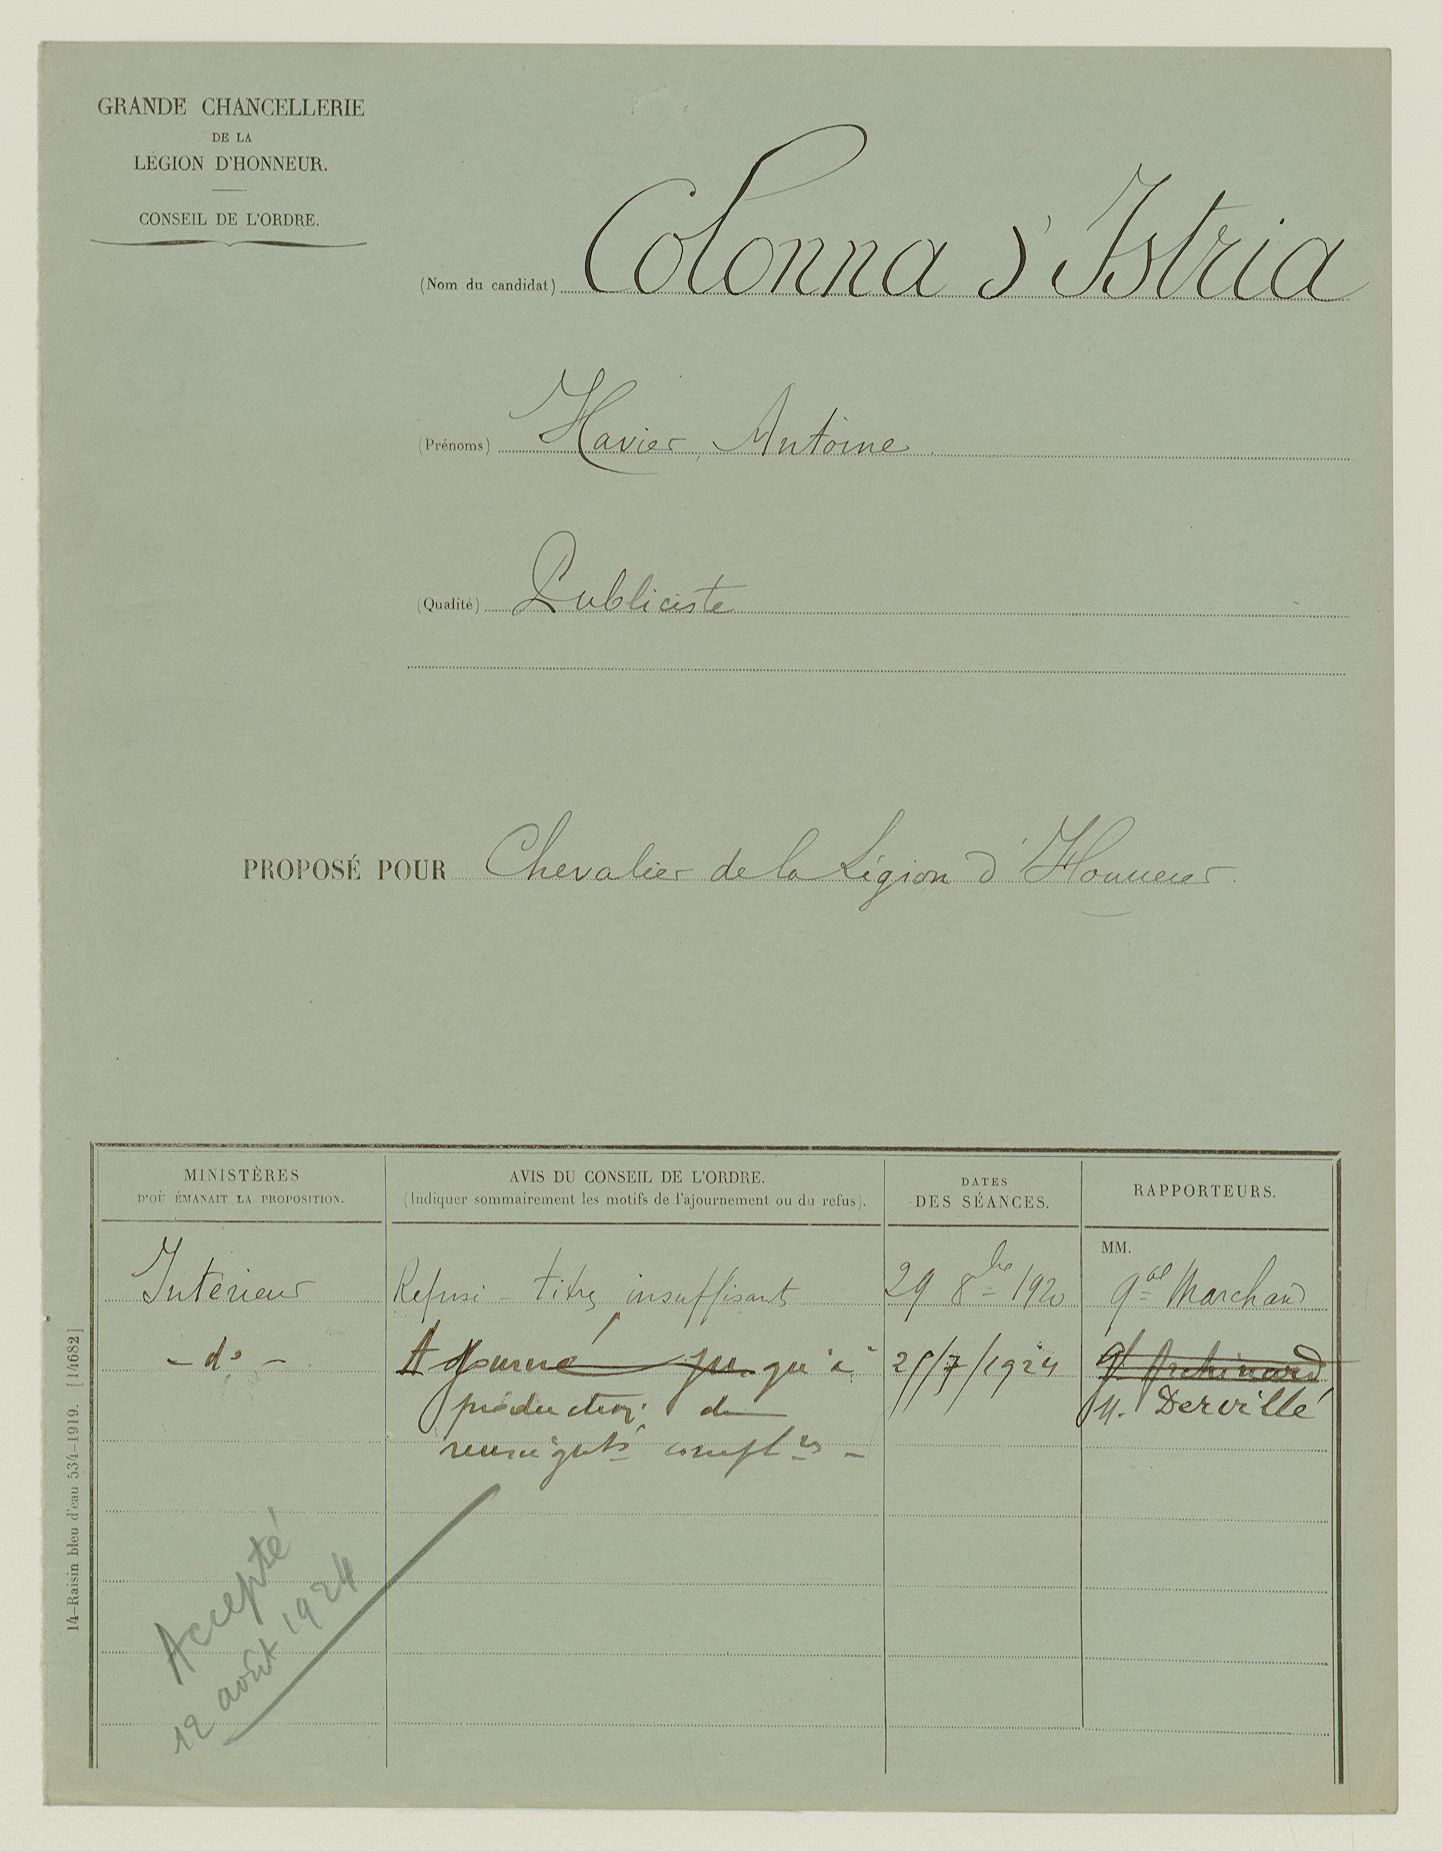 GRANDE CHANCELLERIE
DE LA
LÉGION D'HONNEUR.
CONSEIL DE L'ORDRE.
(Nom du candidat) Colonna d'Istria
(Prénoms) Xavier, Antoine
(Qualité) Publiciste
PROPOSÉ POUR Chevalier de la Légion d'Honneur
MINISTÈRES
D'OÙ ÉMANAIT LA PROPOSITION.
AVIS DU CONSEIL DE L'ORDRE.
(Indiquer sommairement les motifs de l'ajournement ou du refus).
DATES
DES SÉANCES.
RAPPORTEURS.
MM.
Intérieur Refusé - titres insuffisants 29 8bre 1920 Gal Marchand
- do - Ajourné jusqu'à /7/1924 Gl Archinard
production de M. Dervillé
renseignts compl res -
Accepté
12 août 1924
14-Raisin bleu d'eau 534-1919. [14682]